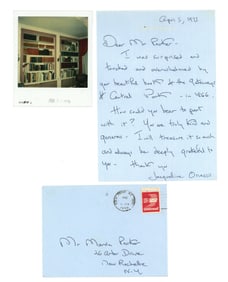 April 5, 1973
Dear Mr. Parker -
I was surprised and
touched and overwhelmed by
your beautiful book for the
of Central Park - in 1866
How could you bear to part
with it? You are truly kind and
generous. I will treasure it so much
and always be deeply grateful to
you - thank you
Jacqueline Onassis
Mr. Parker
Drive
New Rochelle
N.Y.